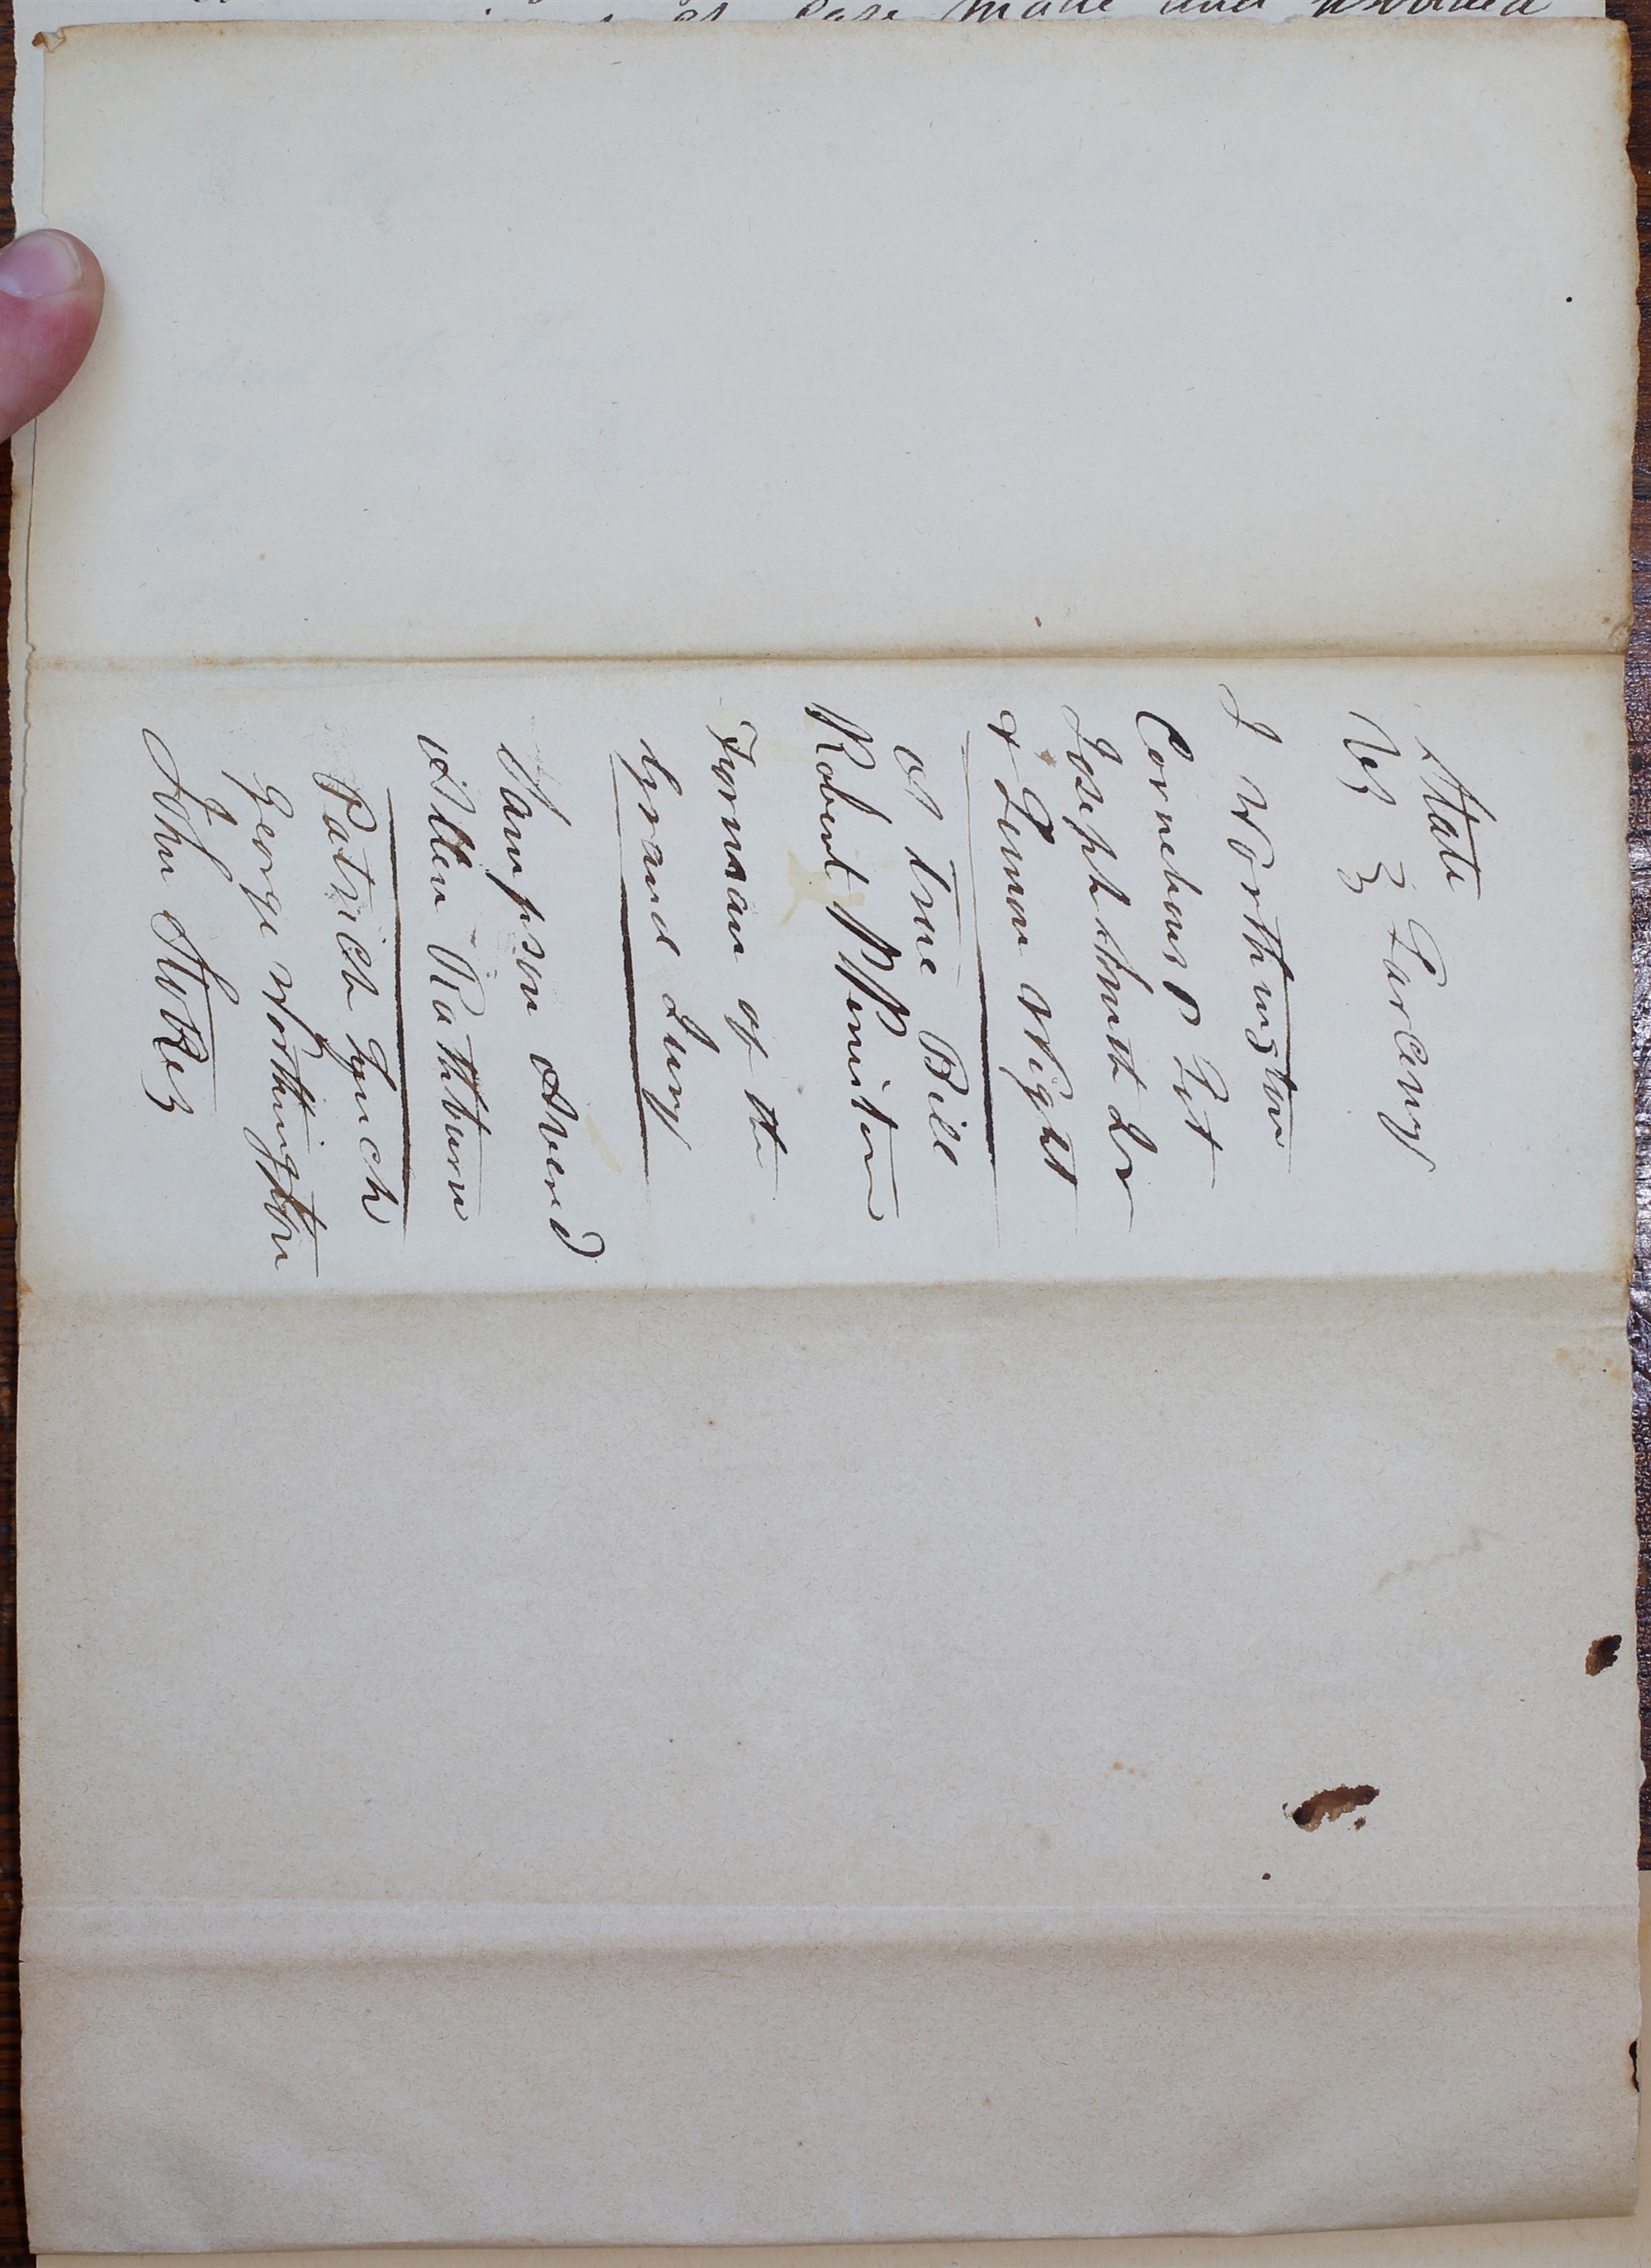 made and
State
Vs } Larceny
J Worthington
Cornelious P Lot
Joseph Smith Jr
& Leman Night
A True Bill
Robert Miller
Forman of the
Grand Jury
Sampson Avend
Allen Rathburn
Patrick Lynch
George Worthington
John Stokes